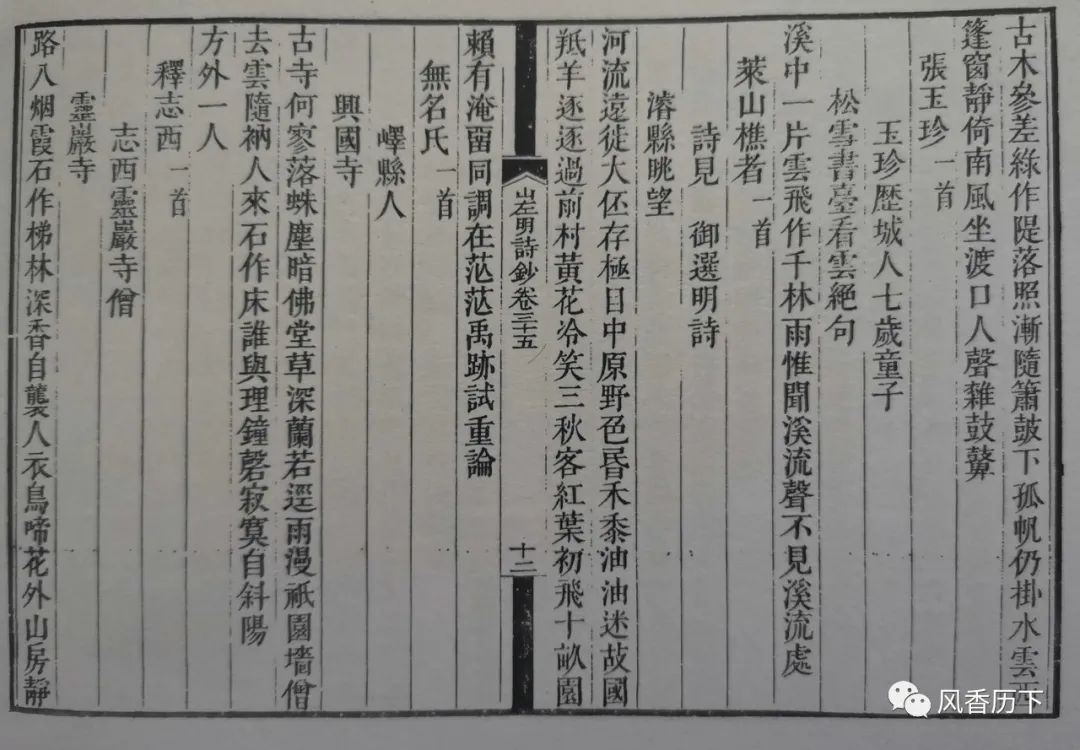 古木參差綠作隄落照漸隨簫鼓下孤帆仍掛水雲西
篷窗靜倚南風坐渡口人聲雜鼓鼙
張玉珍一首
玉珍歷城人七歲童子
松雪書臺看雲絕句
溪中一片雲飛作千林雨惟聞溪流聲不見溪流處
萊山樵者一首
詩見 御選明詩
濬縣眺望
河流遠徙大伾存極目中原野色昏禾黍油油迷故國
羝羊逐逐過前村黃花冷笑三秋客紅葉初飛十畝園
山左明詩鈔卷三十五
十二
賴有淹留同調在茫茫禹跡試重論
無名氏一首
嶧縣人
興國寺
古寺何寥落蛛塵暗佛堂草深蘭若逕雨漫祇園墻僧
去雲隨衲人來石作床誰與理鐘磬寂寞自斜陽
方外一人
釋志西一首
志西靈巖寺僧
靈巖寺
路入烟霞石作梯林深香自襲人衣鳥啼花外山房靜
风香历下